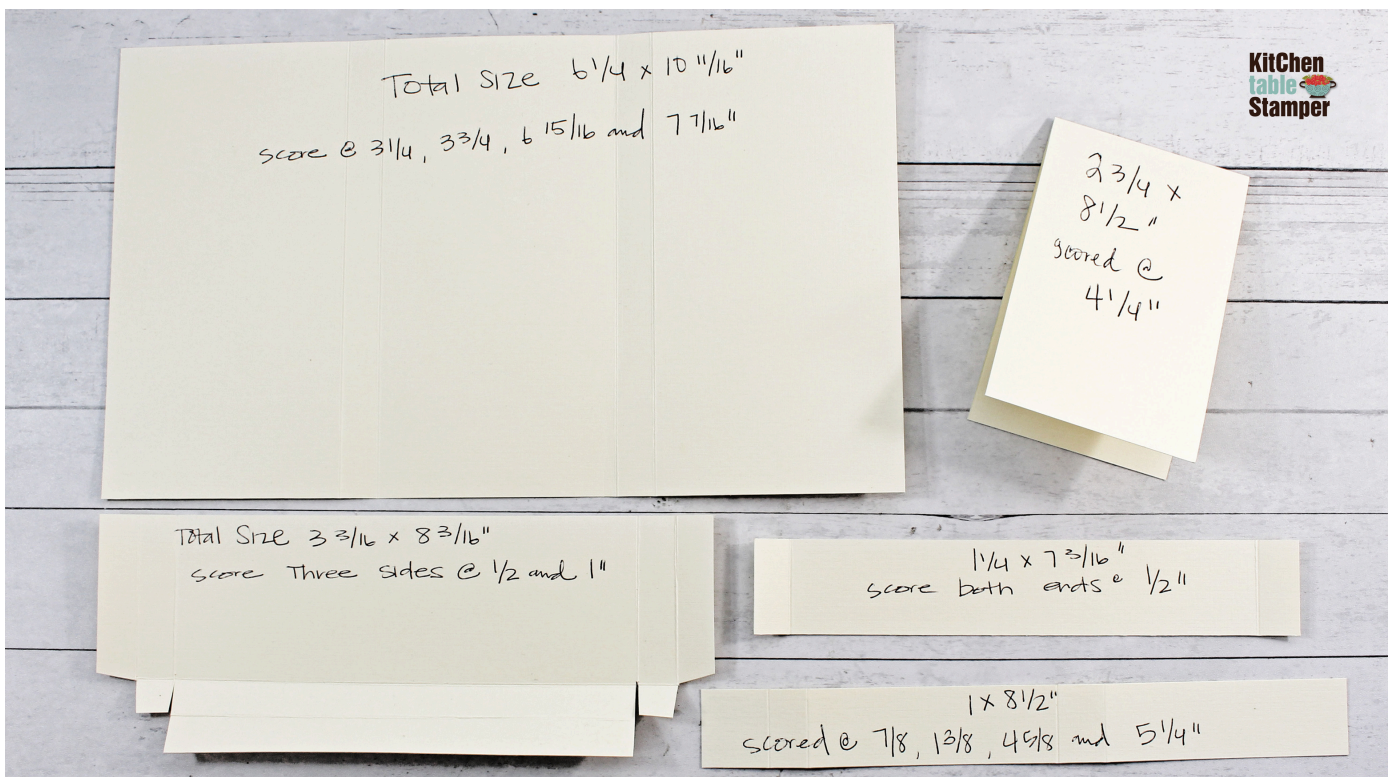 Total Size 6 1/4 x 10 11/16"
score @ 3 1/4, 3 3/4, 6 15/16 and 7 7/16"
KitChen
table
Stamper
2 3/4 x
8 1/2"
scored @
4 1/4"
Total Size 3 3/16 x 8 3/16"
score Three sides @ 1/2 and 1"
1 1/4 x 7 3/16"
score both ends @ 1/2"
1 x 8 1/2"
scored @ 7/8, 1 3/8, 4 5/8 and 5 1/4"